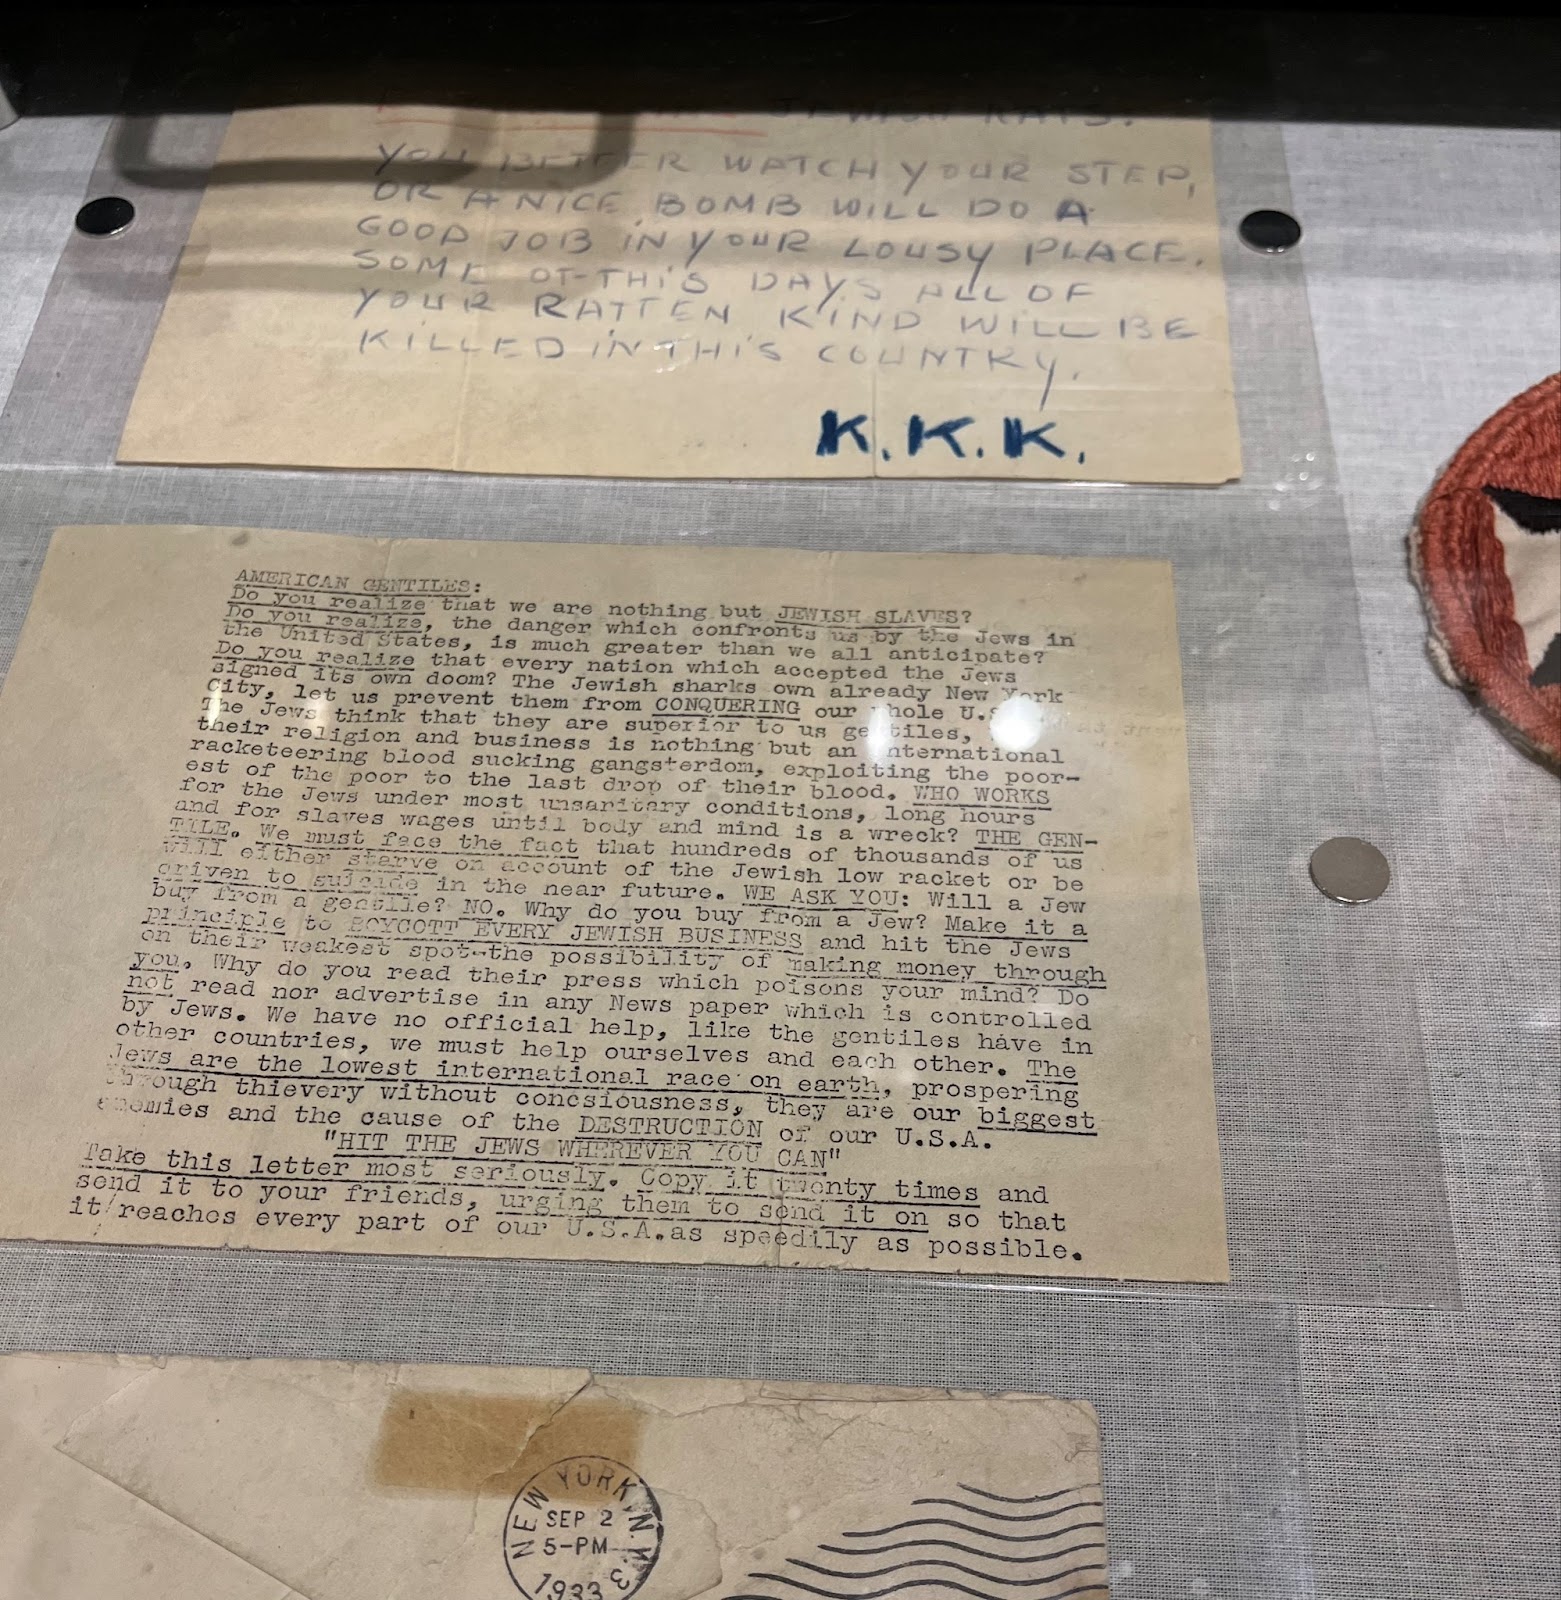 JEWISH RATS.
YOU BETTER WATCH YOUR STEP,
OR A NICE BOMB WILL DO A
GOOD JOB IN YOUR LOUSY PLACE.
SOME OT THIS DAYS ALL OF
YOUR RATTEN KIND WILL BE
KILLED IN THIS COUNTRY.
K.K.K.
AMERICAN GENTILES:
Do you realize that we are nothing but JEWISH SLAVES?
Do you realize, the danger which confronts us by the Jews in
the United States, is much greater than we all anticipate?
Do you realize that every nation which accepted the Jews
signed its own doom? The Jewish sharks own already New York
City, let us prevent them from CONQUERING our whole U.S.
The Jews think that they are superior to us gentiles,
their religion and business is nothing but an international
racketeering blood sucking gangsterdom, exploiting the poor-
est of the poor to the last drop of their blood. WHO WORKS
for the Jews under most unsanitary conditions, long hours
and for slaves wages until body and mind is a wreck? THE GEN-
TILE. We must face the fact that hundreds of thousands of us
will either starve on account of the Jewish low racket or be
driven to suicide in the near future. WE ASK YOU: Will a Jew
buy from a gentile? NO. Why do you buy from a Jew? Make it a
principle to BOYCOTT EVERY JEWISH BUSINESS and hit the Jews
on their weakest spot-the possibility of making money through
you. Why do you read their press which poisons your mind? Do
not read nor advertise in any News paper which is controlled
by Jews. We have no official help, like the gentiles have in
other countries, we must help ourselves and each other. The
Jews are the lowest international race on earth, prospering
through thievery without concsiousness, they are our biggest
enemies and the cause of the DESTRUCTION of our U.S.A.
"HIT THE JEWS WHEREVER YOU CAN"
Take this letter most seriously. Copy it twenty times and
send it to your friends, urging them to send it on so that
it reaches every part of our U.S.A. as speedily as possible.
NEW YORK, N.Y. 3
SEP 2
5-PM
1933